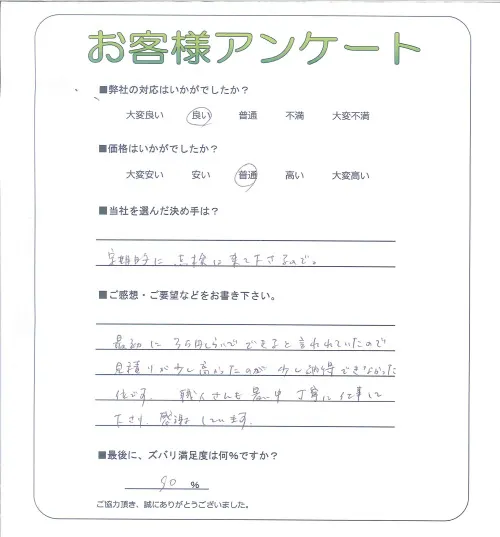 お客様アンケート
■弊社の対応はいかがでしたか?
大変良い 良い 普通 不満 大変不満
■価格はいかがでしたか?
大変安い 安い 普通 高い 大変高い
■当社を選んだ決め手は?
定期的に 点検に来て下さるので。
■ご感想・ご要望などをお書き下さい。
最初に 35万くらいで できると言われていたので
見積りが少し高かったのが 少し納得できなかった
位です。 職人さんも暑い中 丁寧に仕事して
下さり、感謝しています。
■最後に、ズバリ満足度は何%ですか?
90 %
ご協力頂き、誠にありがとうございました。